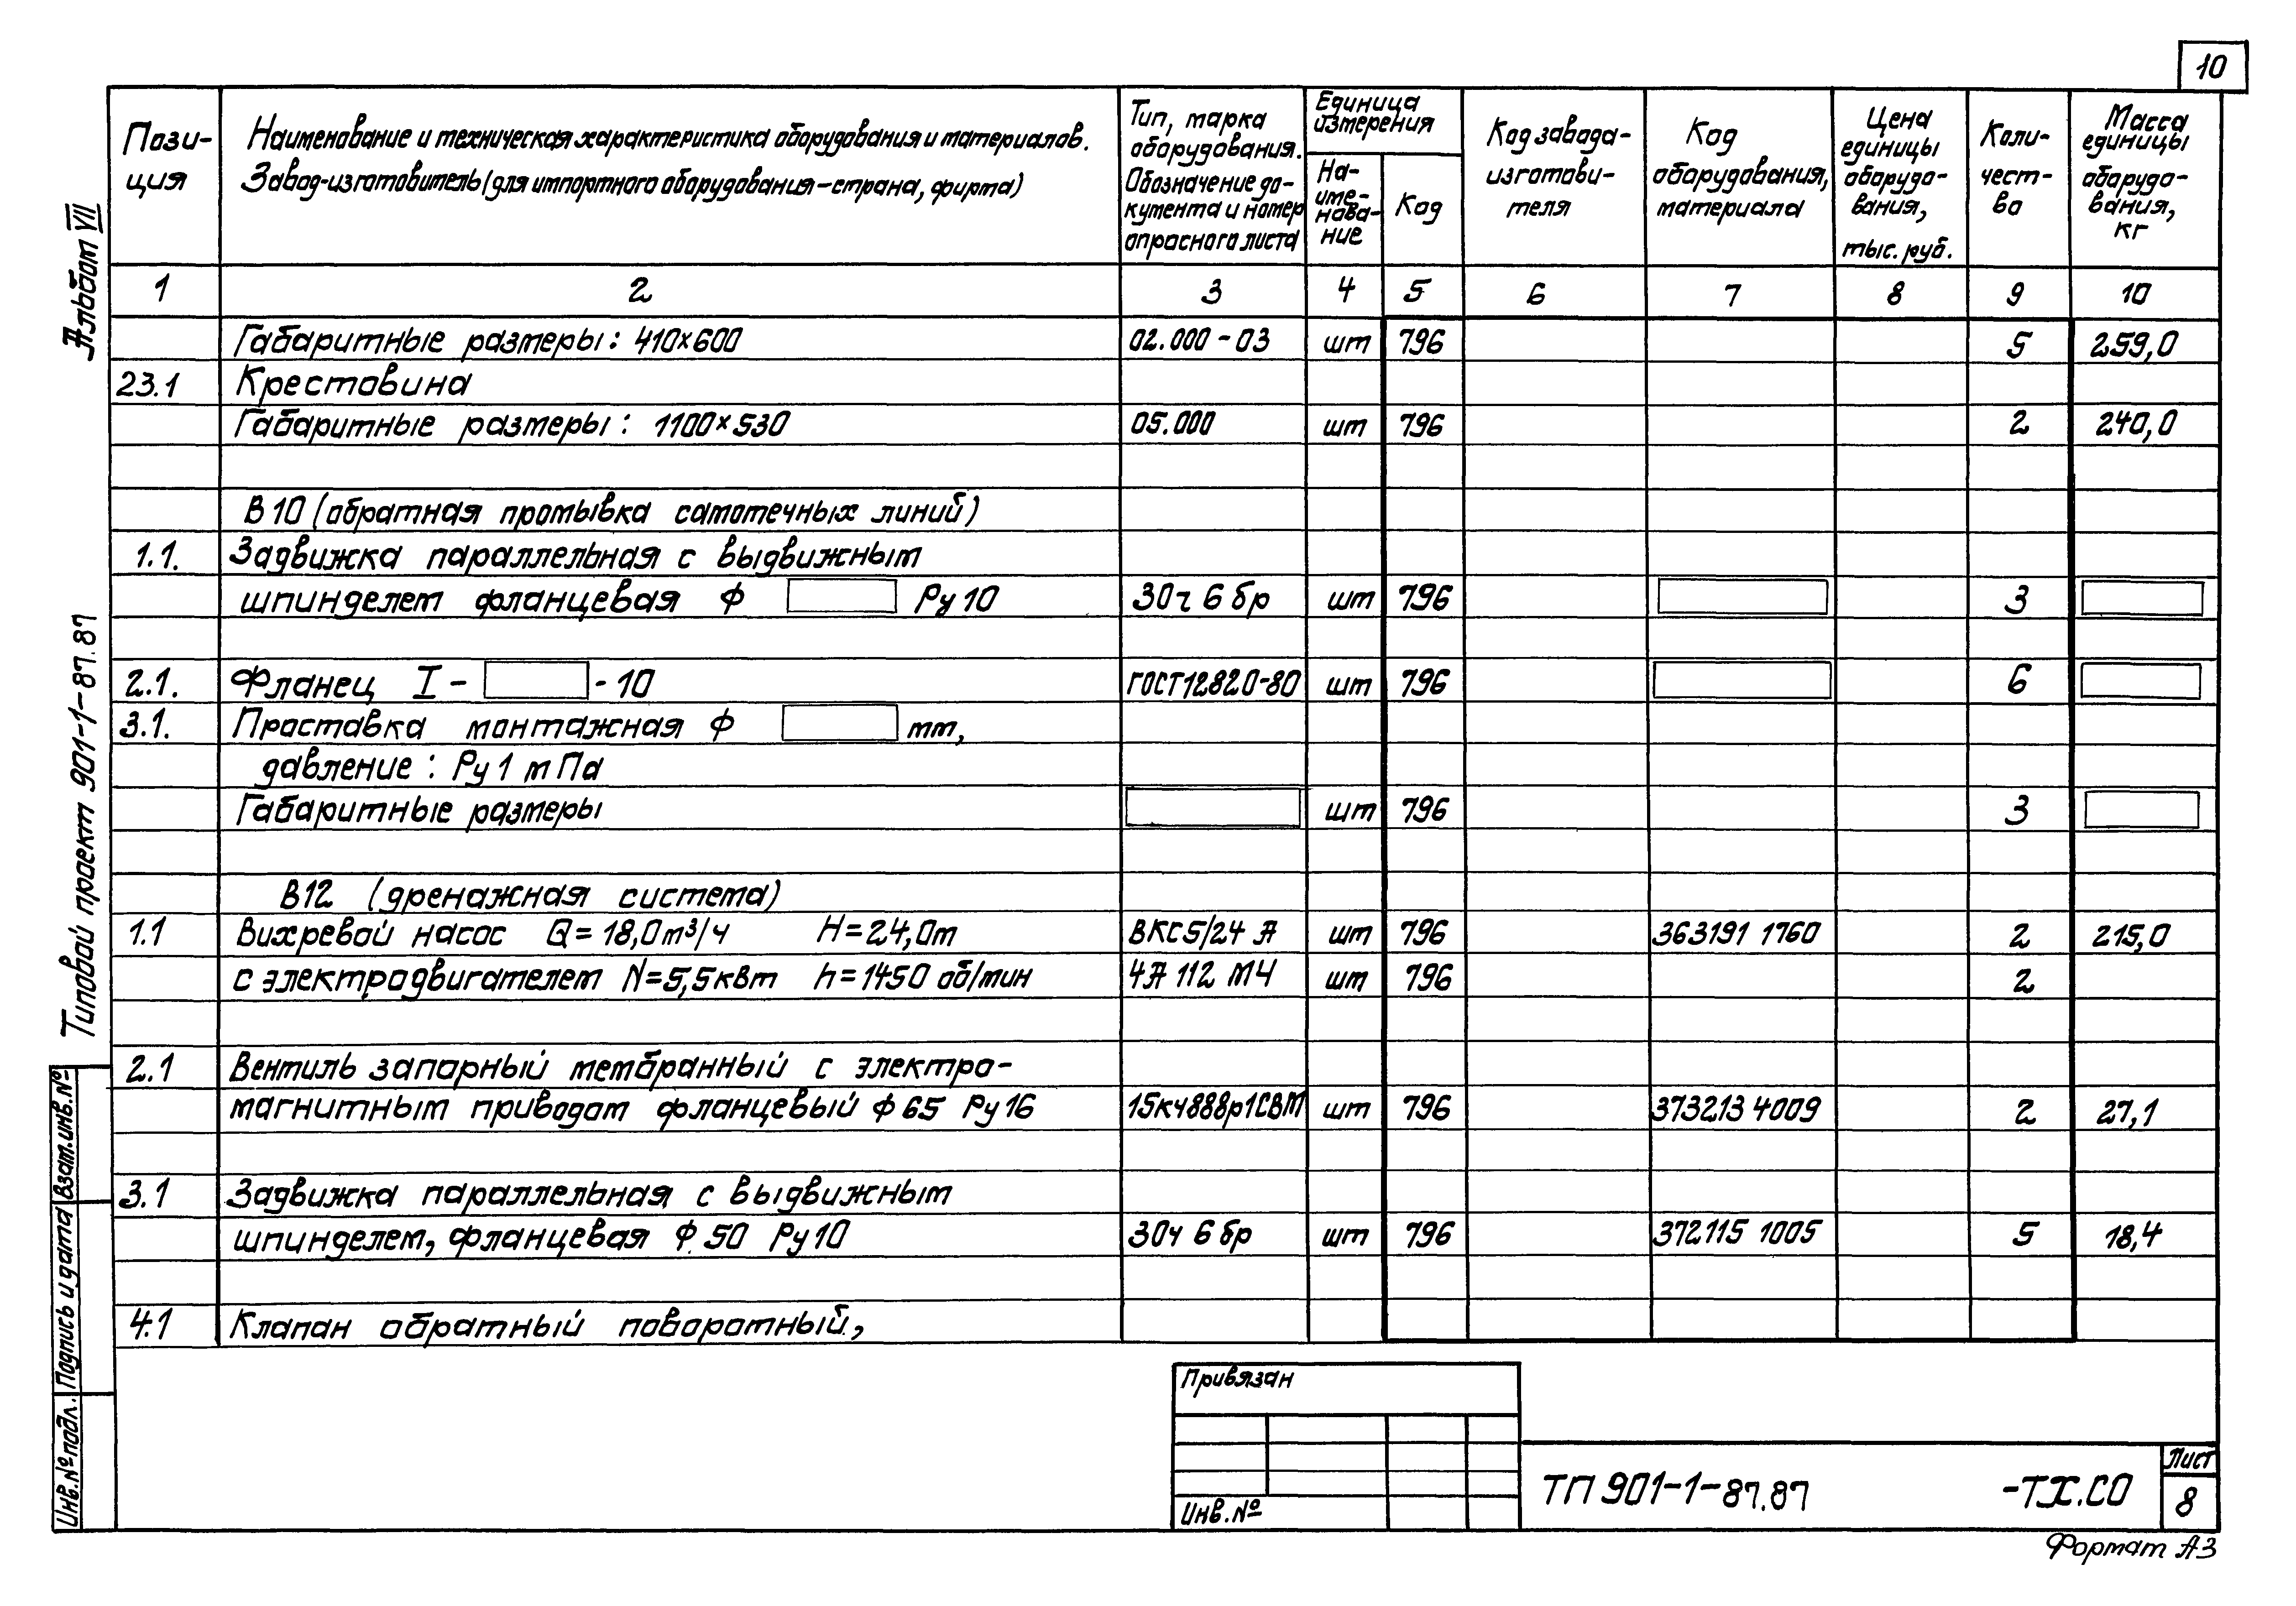 10
Пози-
ция
Наименование и техническая характеристика оборудования и материалов.
Завод-изготовитель (для импортного оборудования-страна, фирма)
Тип, марка
оборудования.
Обозначение до-
кумента и номер
опросного листа
Единица
измерения
На-
име-
нова-
ние
Код
Код завода-
изготови-
теля
Код
оборудования,
материала
Цена
единицы
оборудо-
вания,
тыс. руб.
Коли-
чест-
во
Масса
единицы
оборудо-
вания,
кг
1 2 3 4 5 6 7 8 9 10
Габаритные размеры: 410×600 02.000-03 шт 796 5 259,0
23.1 Крестовина
Габаритные размеры: 1100×530 05.000 шт 796 2 240,0
В10 (обратная промывка самотечных линий)
1.1. Задвижка параллельная с выдвижным
шпинделем фланцевая ф Ру 10 30ч 6 бр шт 796 3
2.1. Фланец I- -10 ГОСТ12820-80 шт 796 6
3.1. Проставка монтажная ф мм,
давление: Ру 1 мПа
Габаритные размеры шт 796 3
В12 (дренажная система)
1.1 Вихревой насос Q=18,0м³/ч H=24,0м ВКС5/24 А шт 796 363191 1760 2 215,0
с электродвигателем N=5,5квт n=1450 об/мин 4А 112 М4 шт 796 2
2.1 Вентиль запорный мембранный с электро-
магнитным приводом фланцевый ф 65 Ру 16 15кч888р1СВМ шт 796 373213 4009 2 27,1
3.1 Задвижка параллельная с выдвижным
шпинделем, фланцевая ф 50 Ру 10 30ч 6 бр шт 796 372115 1005 5 18,4
4.1 Клапан обратный поворотный,
Альбом VII
Типовой проект 901-1-87.87
Взам.инв.№
Подпись и дата
Инв.№ подл.
Привязан
Инв.№
ТП 901-1-87.87 -ТХ.СО
Лист
8
Формат А3